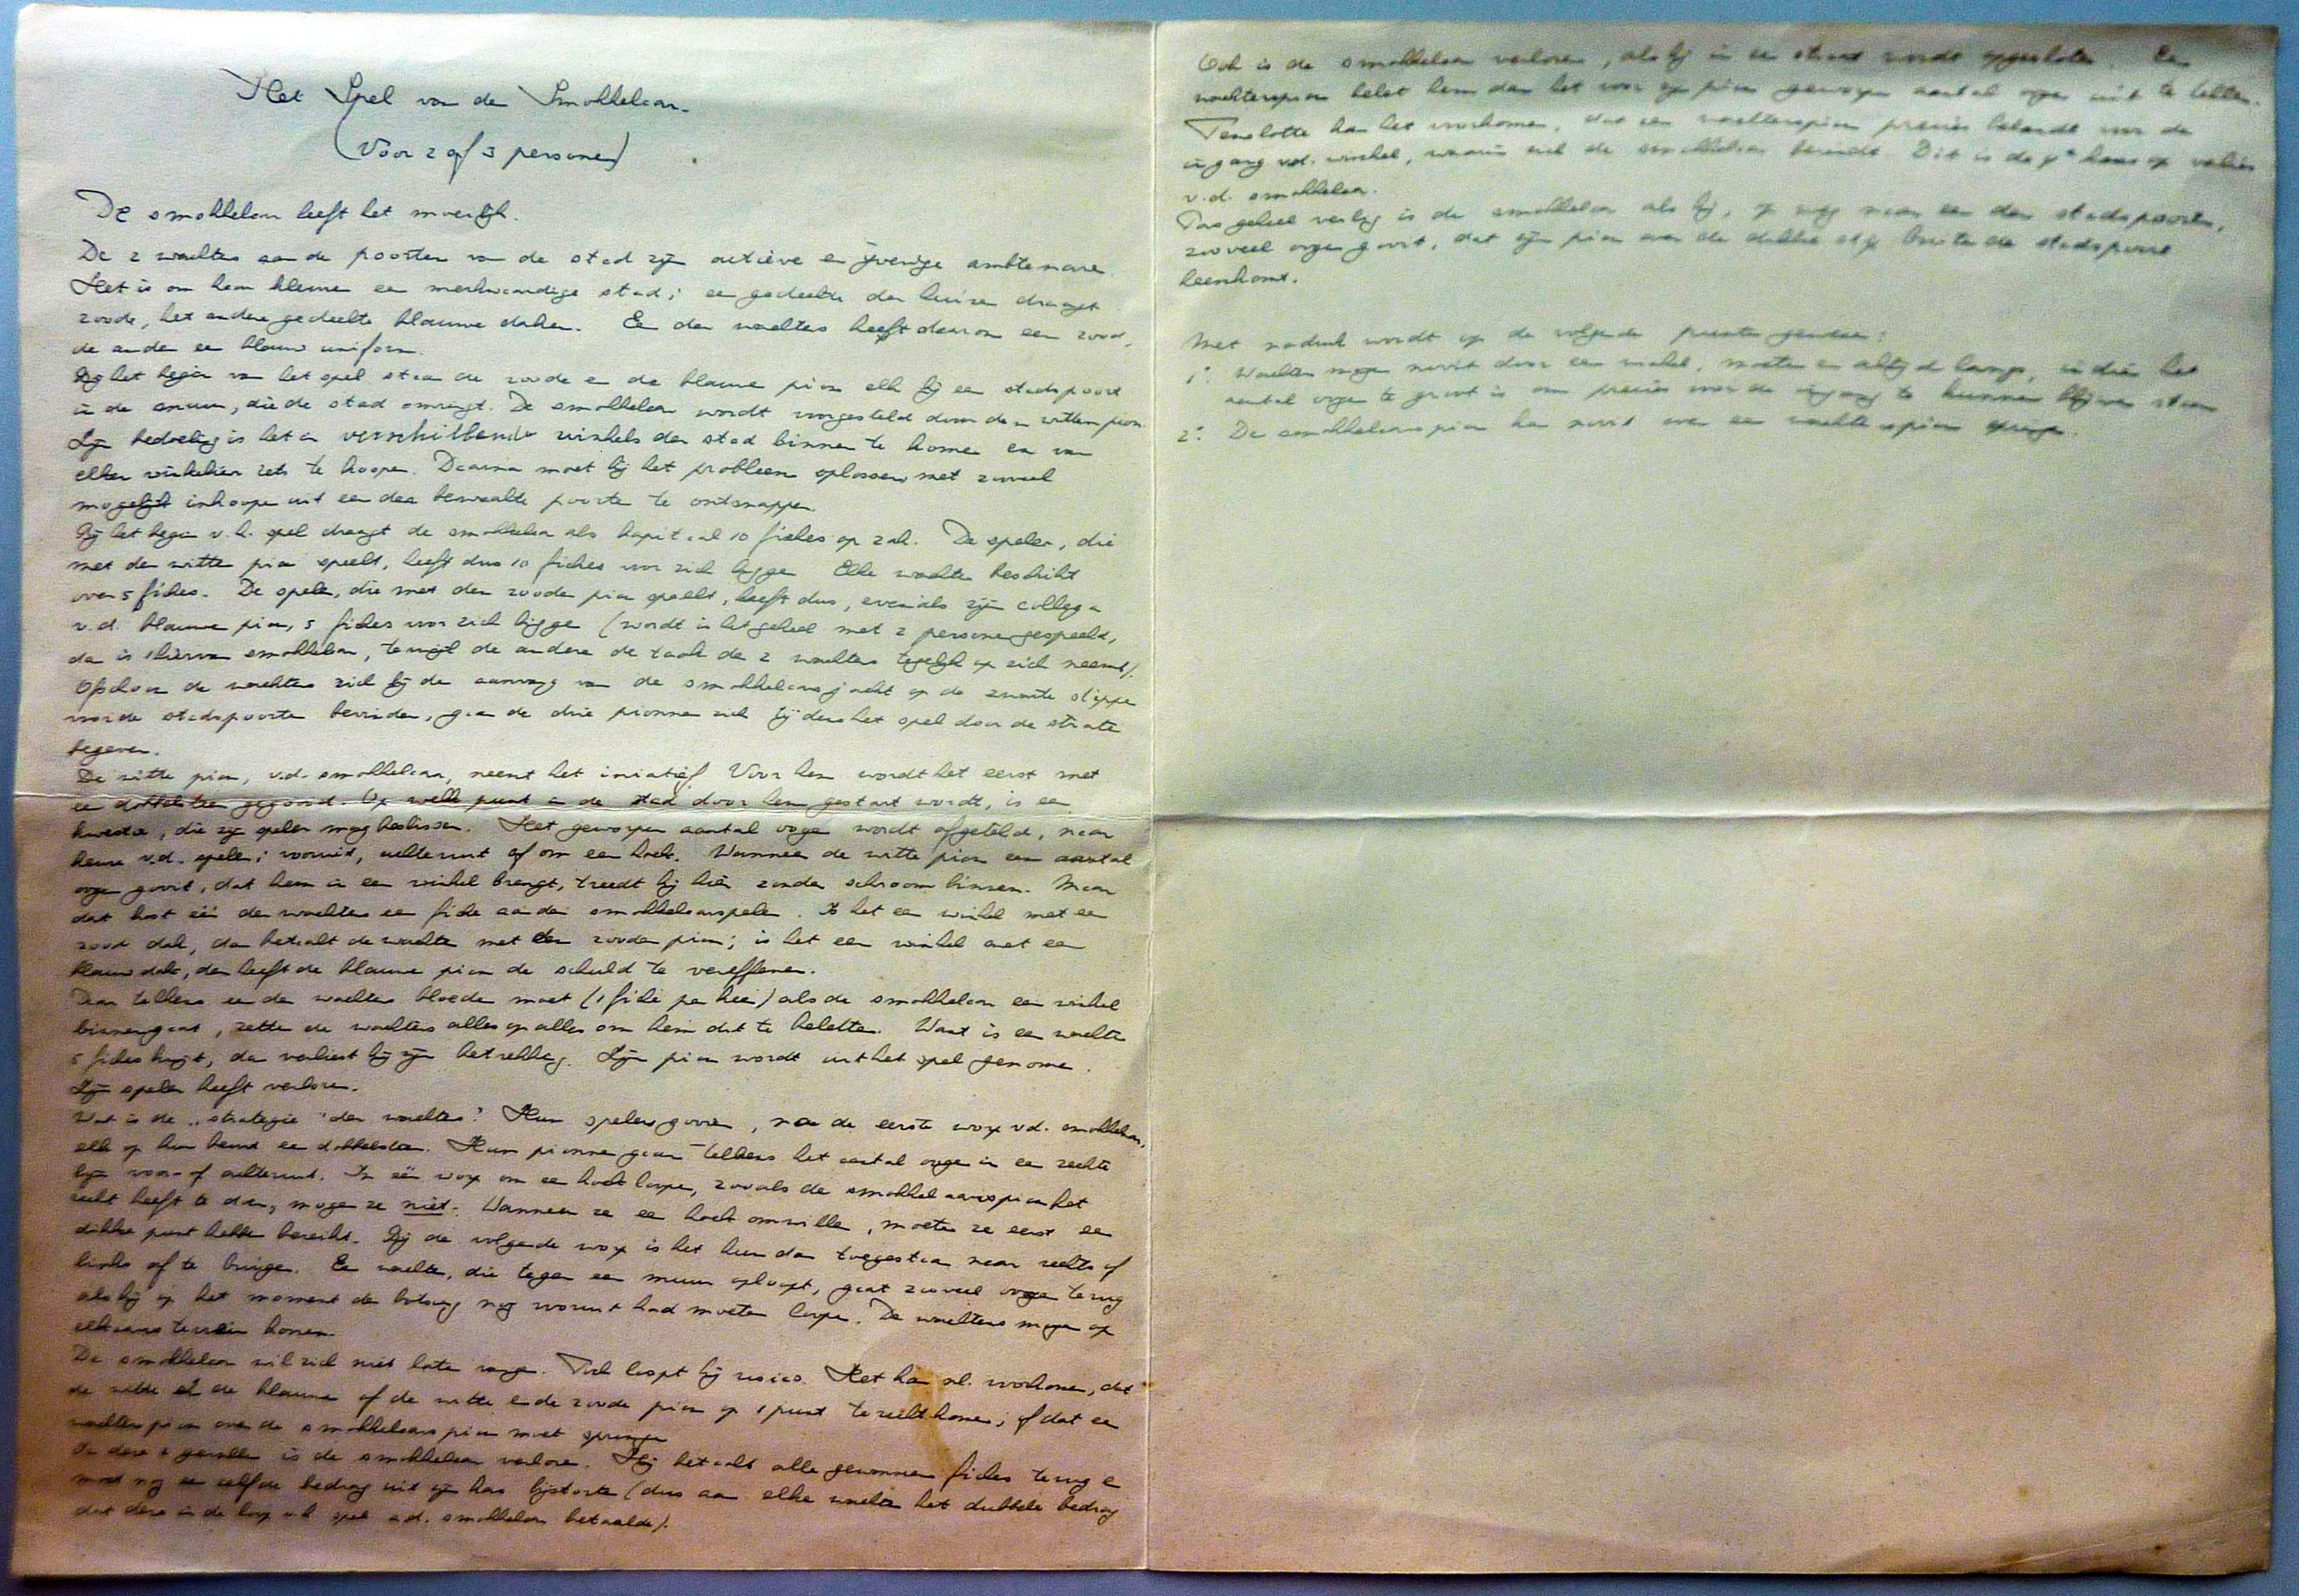 Het Spel van den Smokkelaar.
(Voor 2 of 3 personen)
De smokkelaar heeft het moeilijk.
De 2 wachters aan de poorten van de stad zijn actieve en ijverige ambtenaren.
Het is om hen henen een merkwaardige stad; een gedeelte der huizen draagt
roode, het andere gedeelte blauwe daken. Een der wachters heeft daarom een rood,
de ander een blauw uniform.
Bij het begin van het spel staan de roode en de blauwe pion elk bij een stadspoort
in de muur, die de stad omringt. De smokkelaar wordt voorgesteld door den witten pion.
Zijn bedoeling is het in verschillende winkels der stad binnen te komen en van
elken winkelier iets te koopen. Daarna moet hij het probleem oplossen met zooveel
mogelijk inkoopen uit een der bewaakte poorten te ontsnappen.
Bij het begin v.h. spel draagt de smokkelaar als kapitaal 10 fiches op zak. De speler, die
met den witten pion speelt, heeft dus 10 fiches voor zich liggen. Elke wachter beschikt
over 5 fiches. De speler, die met den rooden pion speelt, heeft dus, evenals zijn collega
v.d. blauwe pion, 5 fiches voor zich liggen (wordt in het geheel met 2 personen gespeeld,
dan is 1 hiervan smokkelaar, terwijl de andere de taak der 2 wachters tegelijk op zich neemt).
Ofschoon de wachters zich bij de aanvang van de smokkelaarsjacht op de zwarte stippen
voor de stadspoorten bevinden, gaan de drie pionnen zich tijdens het spel door de straten
begeven.
De witte pion, v.d. smokkelaar, neemt het initiatief. Voor hem wordt het eerst met
een dobbelsteen gegooid. Op welk punt in de stad door hem gestart wordt, is een
kwestie, die zijn speler mag beslissen. Het geworpen aantal oogen wordt afgeteld, naar
keuze v.d. speler; vooruit, achteruit of om een hoek. Wanneer de witte pion een aantal
oogen gooit, dat hem in een winkel brengt, treedt hij hier zonder schroom binnen. Maar
dat kost één der wachters een fiche aan den smokkelaarspeler. Is het een winkel met een
rood dak, dan betaalt de wachter met den rooden pion; is het een winkel met een
blauw dak, dan heeft de blauwe pion de schuld te vereffenen.
Daar telkens een der wachters bloeden moet (1 fiche per keer) als de smokkelaar een winkel
binnengaat, zetten de wachters alles op alles om hem dat te beletten. Want is een wachter
5 fiches kwijt, dan verliest hij zijn betrekking. Zijn pion wordt uit het spel genomen.
Zijn speler heeft verloren.
Wat is de "strategie" der wachters? Hun spelers gooien, na de eerste worp v.d. smokkelaar,
elk op hun beurt een dobbelsteen. Hun pionnen gaan telkens het aantal oogen in een rechte
lijn voor- of achteruit. In één worp om een hoek loopen, zooals de smokkelaarspion het
recht heeft te doen, mogen ze niet. Wanneer ze een hoek om willen, moeten ze eerst een
dikke punt hebben bereikt. Bij de volgende worp is het hun dan toegestaan naar rechts of
links af te buigen. Een wachter, die tegen een muur oploopt, gaat zooveel oogen terug
als hij op het moment der botsing nog vooruit had moeten loopen. De wachters mogen op
elkaars terrein komen.
De smokkelaar wil zich niet laten vangen. Toch loopt hij risico. Het kan nl. voorkomen, dat
de witte en de blauwe of de witte en de roode pion op 1 punt terecht komen; of dat een
wachterspion over de smokkelaarspion moet springen.
In deze gevallen is de smokkelaar verloren. Hij betaalt alle gewonnen fiches terug en
moet nog een zelfde bedrag uit zijn kas bijstorten (dus aan elke wachter het dubbele bedrag
dat deze in de loop v.h. spel a.d. smokkelaar betaalde).
Ook is de smokkelaar verloren, als hij in een straat wordt opgesloten. Een
wachterspion belet hem dan het voor zijn pion geworpen aantal oogen uit te tellen.
Tenslotte kan het voorkomen, dat een wachterspion precies belandt voor de
ingang v.d. winkel, waarin zich de smokkelaar bevindt. Dit is de kans op verlies
v.d. smokkelaar.
Pas geheel veilig is de smokkelaar als hij, op weg naar een der stadspoorten,
zooveel oogen gooit, dat zijn pion over de dikke stip buiten de stadspoort
heenkomt.
Met nadruk wordt op de volgende punten gewezen:
1°. Wachters mogen nooit door een winkel, moeten er altijd langs, indien het
aantal oogen te groot is om precies voor de ingang te kunnen blijven staan
2°. De smokkelaarspion kan nooit over een wachterspion springen.